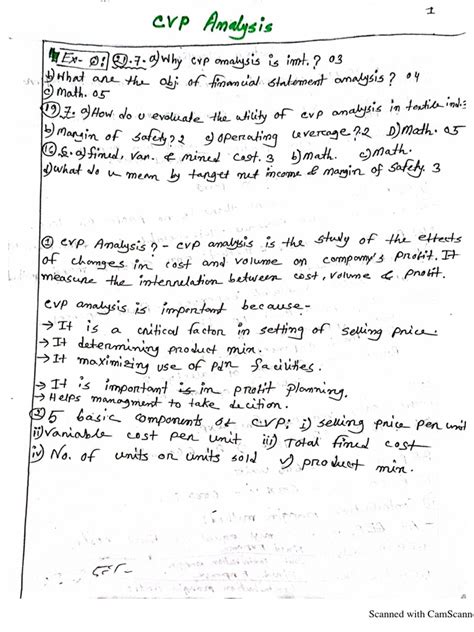 1
CVP Analysis
Ex-Q: (21).7. a) Why CVP analysis is imt.? 03
b) What are the obj. of financial statement analysis? 04
c) Math. 05
(19) 7. a) How do u evaluate the utility of CVP analysis in textile ind:
b) Margin of safety? 2 c) Operating leverage? 2 D) Math. 05
8. a) fixed, van. & mixed cost. 3 b) Math. c) Math.
d) What do u mean by target net income & margin of safety. 3
① CVP Analysis? - CVP analysis is the study of the effects
of changes in cost and volume on company's profit. It
measure the interrelation between cost, volume & profit.
CVP analysis is important because-
→ It is a critical factor in setting of selling price.
→ It determining product mix.
→ It maximizing use of pdn facilities.
→ It is important in profit planning.
→ Helps managment to take decition.
② 5 basic components of CVP: i) selling price per unit
ii) Variable cost per unit iii) Total fixed cost
iv) No. of units or units sold v) product mix.
Scanned with CamScann